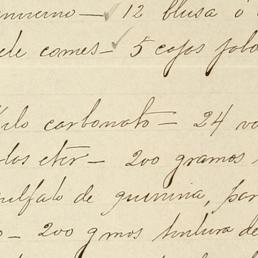 12 blusa ó
de comes - 5 cajas
kilo carbonato - 24
los eter - 200 gramos
sulfato de quinina, par
o - 200 gmos tintura de